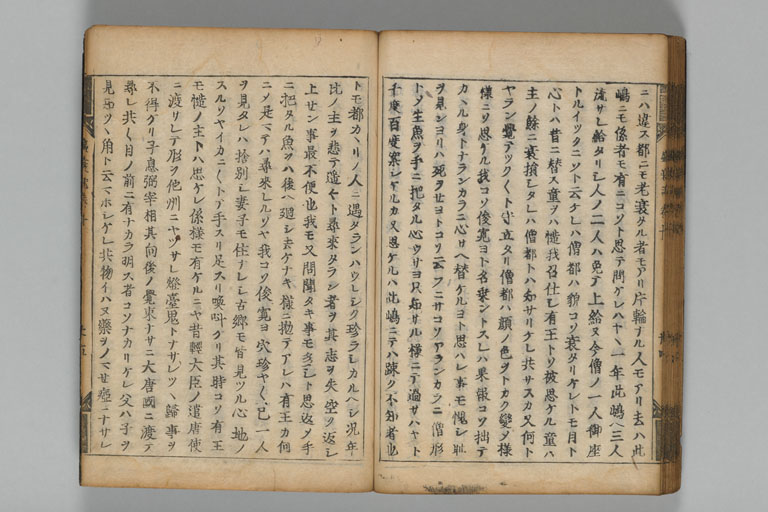 ニハ違ス都ニモ老衰タル者モアリ片輪ナル人モアリ去ハ此
嶋ニモ係者モ有ニコソト思テ問ケレハヤヽ一年此嶋ヘ三人
流サレ給タリシ人ノ二人ハ免テ上給ヌ今僧ノ一人御座
トルイツクニソト云ケレハ僧都ハ貌コソ衰タリケレトモ目ト
心トハ昔ニ替ス童ヲハ慥我召仕シ有王トソ被思ケル童ハ
主ノ餘ニ衰損シタレハ僧都トハ知サリケレ共サスカ又何ト
ヤラン覺テツクヽトソ立タリ僧都ハ顔ノ色ヲトカク變メ様
様ニソ思ケル我コソ俊寛ヨト名乗ントスレハ果報コソ拙テ
カヽル身トナランカラニ心サヘ替ケルヨト思ハレ事モ愧シ耻
ヲ見ンヨリハ死ヲセヨトコソ云フニサコソアランカラニ僧形
トメ生魚ヲ手ニ把タル心ウサヨ只知サル様ニテ過サハヤト
千度百度案シケルカ又思ケルハ此嶋ニテハ疎ク不知者也
トモ都カヽリノ人ニ遇タランハウレシク珍ラシカルヘシ況年
比ノ主ヲ悲テ遥々ト尋来タラン者ヲ其志ヲ失空ク返シ
上セン事最不便也我モ又問聞タキ事モ多シト思返ノ手
ニ把タル魚ヲハ後ヘ廻シ去ケナキ様ニ抛テアレハ有王カ何
ニメ是マテハ尋来ルソヤ我コソ俊寛ヨ穴珍ヤヽ已一人
ヲ見タレハ捨別シ妻子モ住ナレシ古郷モ皆見ツル心地ノ
スルソヤイカニヽトテ手スリ足スリ喚叫ケリ其時コソ有王
モ慥ノ主トハ思ケレ係様モ有ケルニヤ昔輕大臣ノ遣唐使
ニ渡サレテ形ヲ他州ニヤツサレ燈臺鬼トナサレツヽ歸事ヲ
不得ケリ子息弼宰相其向後ノ覺束ナサニ大唐國ニ渡テ
尋レ共ヽ目ノ前ニ有ナカラ明ス者コソナカリケレ父ハ子ヲ
見知ツヽ角ト云マホシケレ共物イハヌ藥ヲノマセ瘂ニナサレ